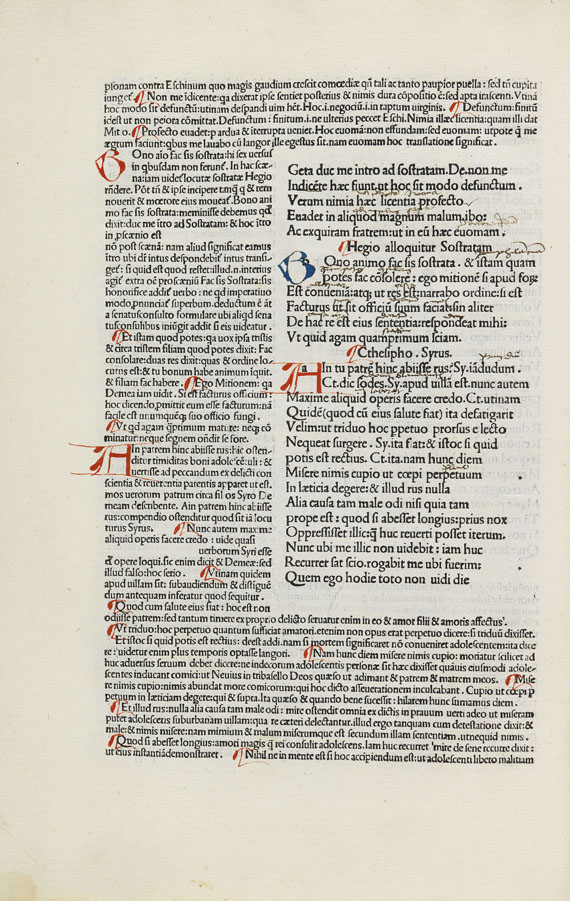 psonam contra Eschinum quo magis gaudium crescit comœdiæ qñ tali ac tanto paupior puella : sed tñ cupita
iunget. Non me idicente: qa dixerat ipse sentiet posterius & nimis dura cõpositio ẽ: sed apta irascenti. Vtinã
hoc modo sit defunctũ: utinam despandi uim hẽt. Hoc .i. negociũ .i. in raptum uirginis. Defunctum: finitũ
id est ut non peiora cõmittat. Defunctum : finitum .i. ne ulterius peccet Eschi. Nimia illæc licentia: quam illi dat
Mitio. Profecto euadet: p ardua & iterrupta ueniet. Hoc euomã: non effundam: sed euomam: utpote q̃ me
ægrum faciunt: qbus me lauabo cũ langor ille egestus sit. nam euomam hoc translatione significat.
Bono aĩo fac sis sostrata: hi sex uersus
in qbusdam non ferunt̃. In hac scæ-
na: iam uides locutæ sostratæ Hegio
rñdere. Põt tñ & ipse incipere tamq̃ q & tem
nouerit & mœrore eius moueat̃. Bono ani
mo fac sis sostrata: meminisse debemus qđ
dixit: duc me itro ad Sostratam: & hoc ĩtro
in pscænio est
nõ post scænã: nam aliud significat eamus
ĩtro ubi dñ intus despondebit̃ intus transi-
get̃: si quid est quod restet: illud .n. interius
agit̃ extra oẽ proscæniũ Fac sis Sostrata: sis
honorifice addit̃ uerbo : ne qđ imperatiuo
modo, pnũciat̃ superbum. deductum ẽ ãt
a senatusconsulto formulare ubi aliqđ sena
tusconsultibus iniũgit̃ addit̃ si eis uideatur.
Et istam quod potes: qa uox ipsa tristis
& circa tristem filiam quod potes dixit: Fac
consolare: duas res dixit: quas & ordine lo-
cutus est: & tu bonum habe animum ĩquit.
& filiam fac habere. Ego Mitionem: qa
Demea iam uidit. Si est facturus officium:
hoc dicendo, pmittit eum esse facturum: nã
facile est unumquẽq; suo officio fungi.
Vt qd agam q̃primum mature: ne quẽq; com-
minatur: neque segnem oñdit se fore.
Hin patrem hinc abiisse rus: hic osten-
ditur timiditas boni adolescẽtuli: &
uertisse ad peccandum ex delicti con
scientia & reuerentia parentis apparet ut est.
mos uerorum patrum circa fil os Syro De
meam describente. Ain patrem hinc abiisse
rus: compendio ostenditur quod sit iã locu
turus Syrus. Nunc autem maxime
aliquid operis facere credo : uide quasi
uerborum Syri esse
đ opere loqui. sic enim dicit & Demeæ: sed
illud falso: hoc serio. Vtinam quidem
apud uillam sit: subaudiendum & distiguẽ
dum antequam inferatur quod sequitur.
Quod cum salute eius fiat : hoc est non
odiisse patrem: sed tantum timere ex proprio delicto seruatur enim in eo & amor filii & amoris affectus.
Vt triduo: hoc perpetuo quantum sufficiat amatori. etenim non opus erat perpetuo dicere: si triduũ dixisset.
Et istoc si quid potis est rectius: deest addi. nam si mortem significaret nõ conueniret adolescentem: ita dice
re : uidetur enim plus temporis optasse langori. Nam hunc diem misere nimis cupio: moriatur scilicet ad
huc aduersus seruum debet dicere: ne indecorum adolescentis personæ sit hæc dixisset quáuis eiusmodi adole-
scentes inducant comici: ut Neuius in tribasello Deos quæso ut adimant & patrem & matrem meos. Mise
re nimis cupio: nimis abundat more comicorum: qui hoc dicto asseuerationem inculcabant. Cupio ut cœpi p
petuum in lætitiam degere: qui & supra. Ita quæso & quando bene successit: hilarem hunc sumamus diem.
Et illud rus: nulla alia causa tam male odi : mire ostendit omnia ex dictis in prauum uerti adeo ut miseram
putet adolescens suburbanam uillam: qua re cæteri delectantur. illud ergo tanquam cum detestatione dixit: &
male: & nimis misere: nam mimium & malum miserumque est secundum illam sententiam. ut nequid nimis.
Quod si abesset longius: amori magis q̃ rei consulit adolescens. Iam huc recurret̃ mire de sene recurre dixit:
ut eius instantiã demonstraret. Nihil ne in mente est si hoc accipiendum est: ut adolescenti libero malitiam
Geta duc me intro ad sostratam. De. non me
Indicẽte hæc fiunt. ut hoc sit modo defunctum.
Verum nimia hæc licentia profecto
Euadet in aliquod magnum malum. ibo:
Ac exquiram fratrem: ut in eũ hæc euomam.
Hegio alloquitur Sostratam
Bono animo fac sis sostrata. & istam quam
potes fac cõsolere : ego mitionẽ si apud forũ est
Est conueniã: atq; ut res est: narrabo ordine: si est
Facturus ut sit officiũ suum faciat: sin aliter
De hac re est eius sententia: respondeat mihi:
Vt quid agam quamprimum sciam.
Cthesipho . Syrus.
Ain tu patrẽ hinc abiisse rus? Sy. iadudum.
Ct. dic sodes. Sy. apud uillã est. nunc autem
Maxime aliquid operis facere credo. Ct. utinam
Quidẽ (quod cũ eius salute fiat) ita defatigarit
Velim: ut triduo hoc ppetuo prorsus e lecto
Nequeat surgere. Sy. ita fiat: & istoc si quid
potis est rectius. Ct. ita. nam hunc diem
Misere nimis cupio ut cœpi perpetuum
In læticia degere: & illud rus nulla
Alia causa tam male odi nisi quia tam
prope est : quod si abesset longius: prius nox
Oppressisset illic: q̃ huc reuerti posset iterum.
Nunc ubi me illic non uidebit : iam huc
Recurret sat scio. rogabit me ubi fuerim:
Quem ego hodie toto non uidi die